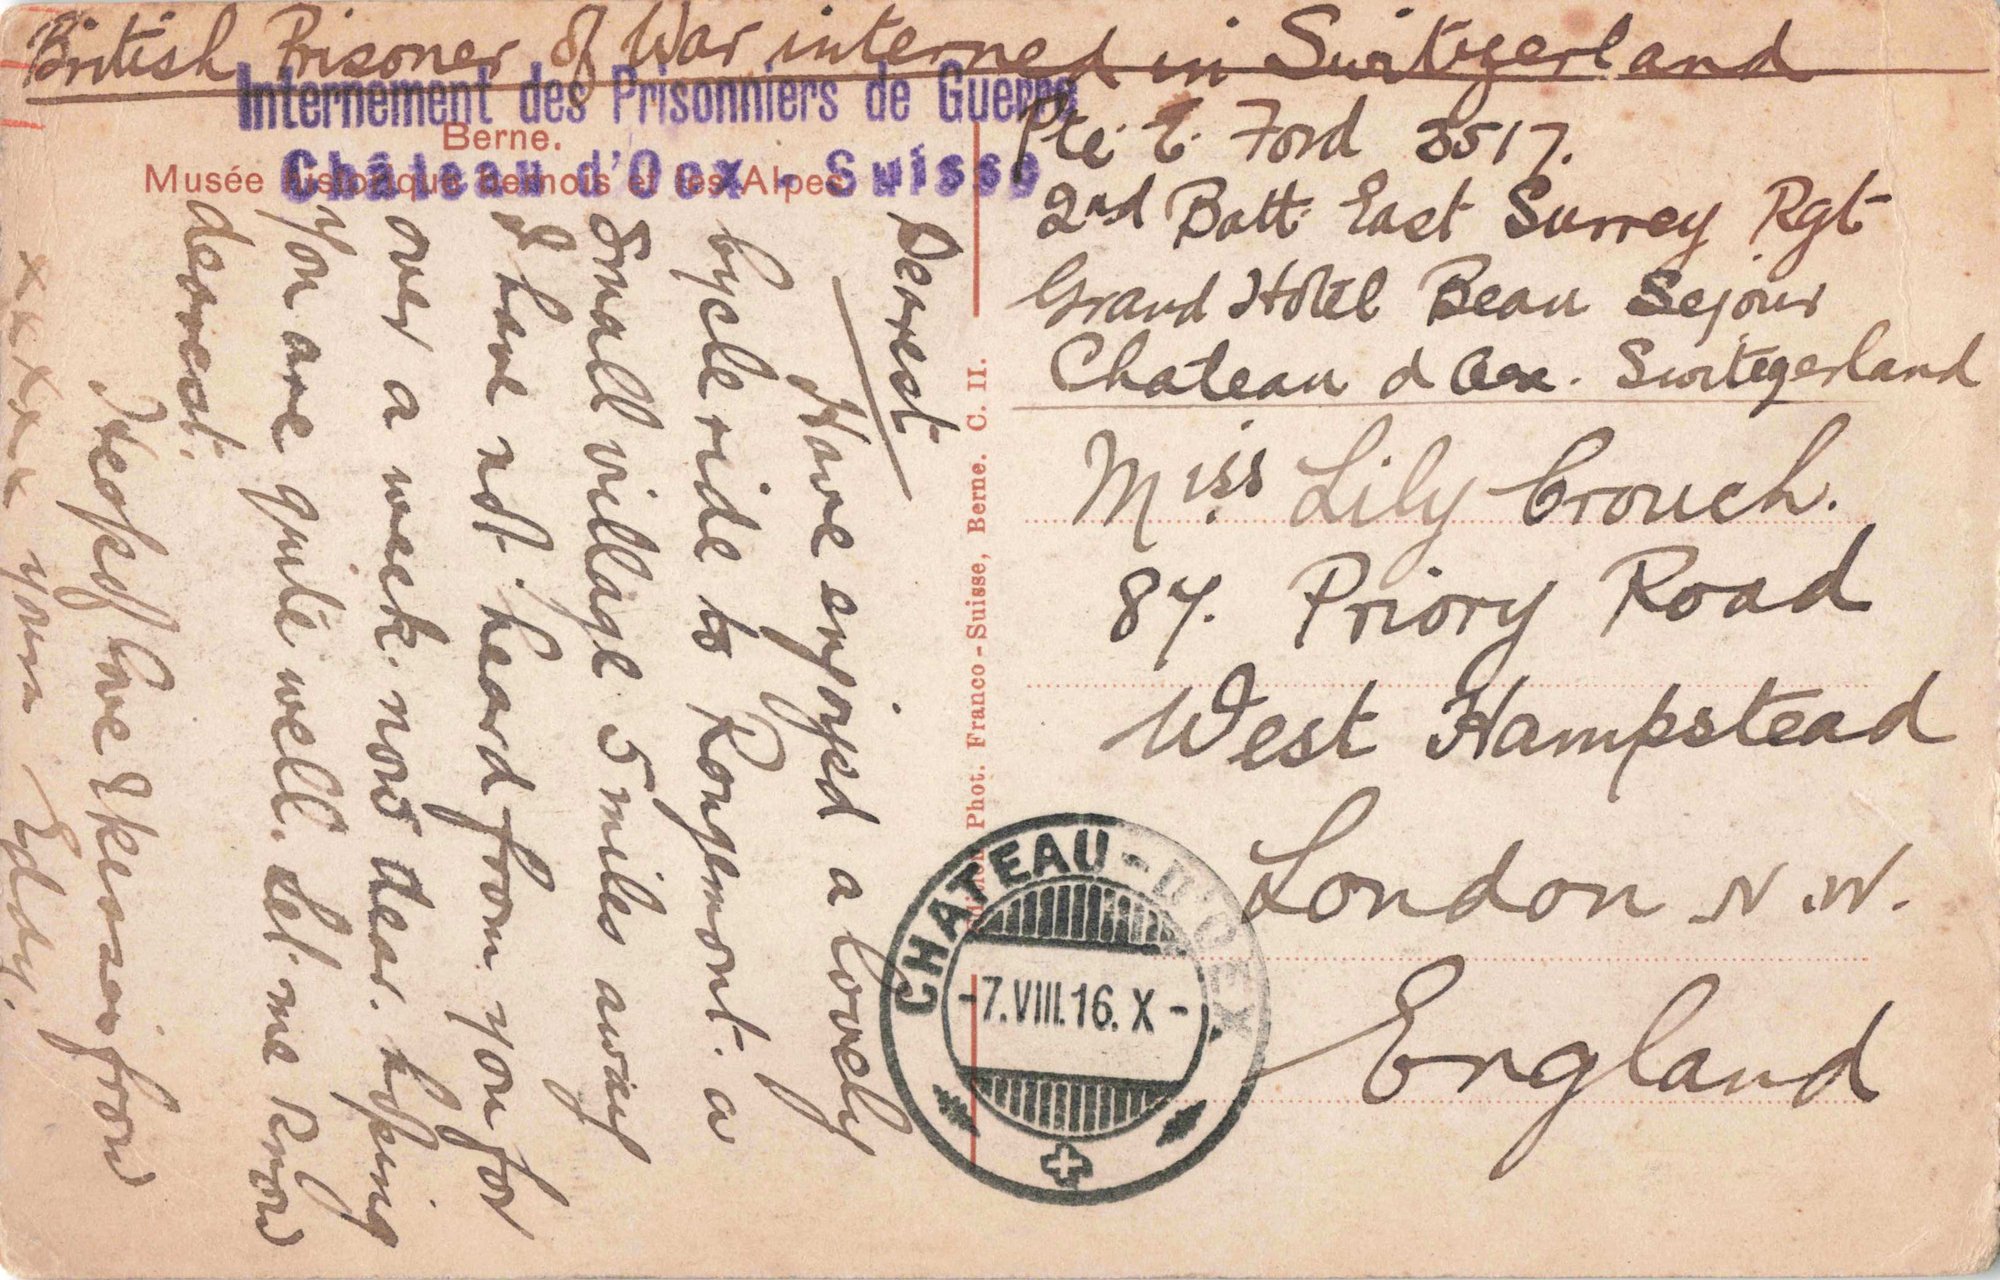 British Prisoner of War interned in Switzerland
Internement des Prisonniers de Guerre
Berne.
Château d'Oex - Suisse
Musée historique bernois et les Alpes
Pte. E. Ford 3517.
2nd Batt. East Surrey Rgt
Grand Hotel Beau Sejour
Chateau d Oex. Switzerland
Miss Lily Crouch.
87. Priory Road
West Hampstead
London N.W.
England
Dearest
Have enjoyed a lovely
bycle ride to Rougemont. a
small village 5 miles away
I have not heard from you for
over a week now dear. hoping
you are quite well. Let me know
dearest.
Heaps of love & kisses from
xxxxxx your Eddy.
Phot. Franco-Suisse, Berne. C. II.
CHATEAU-D'OEX
-7.VIII.16.X-